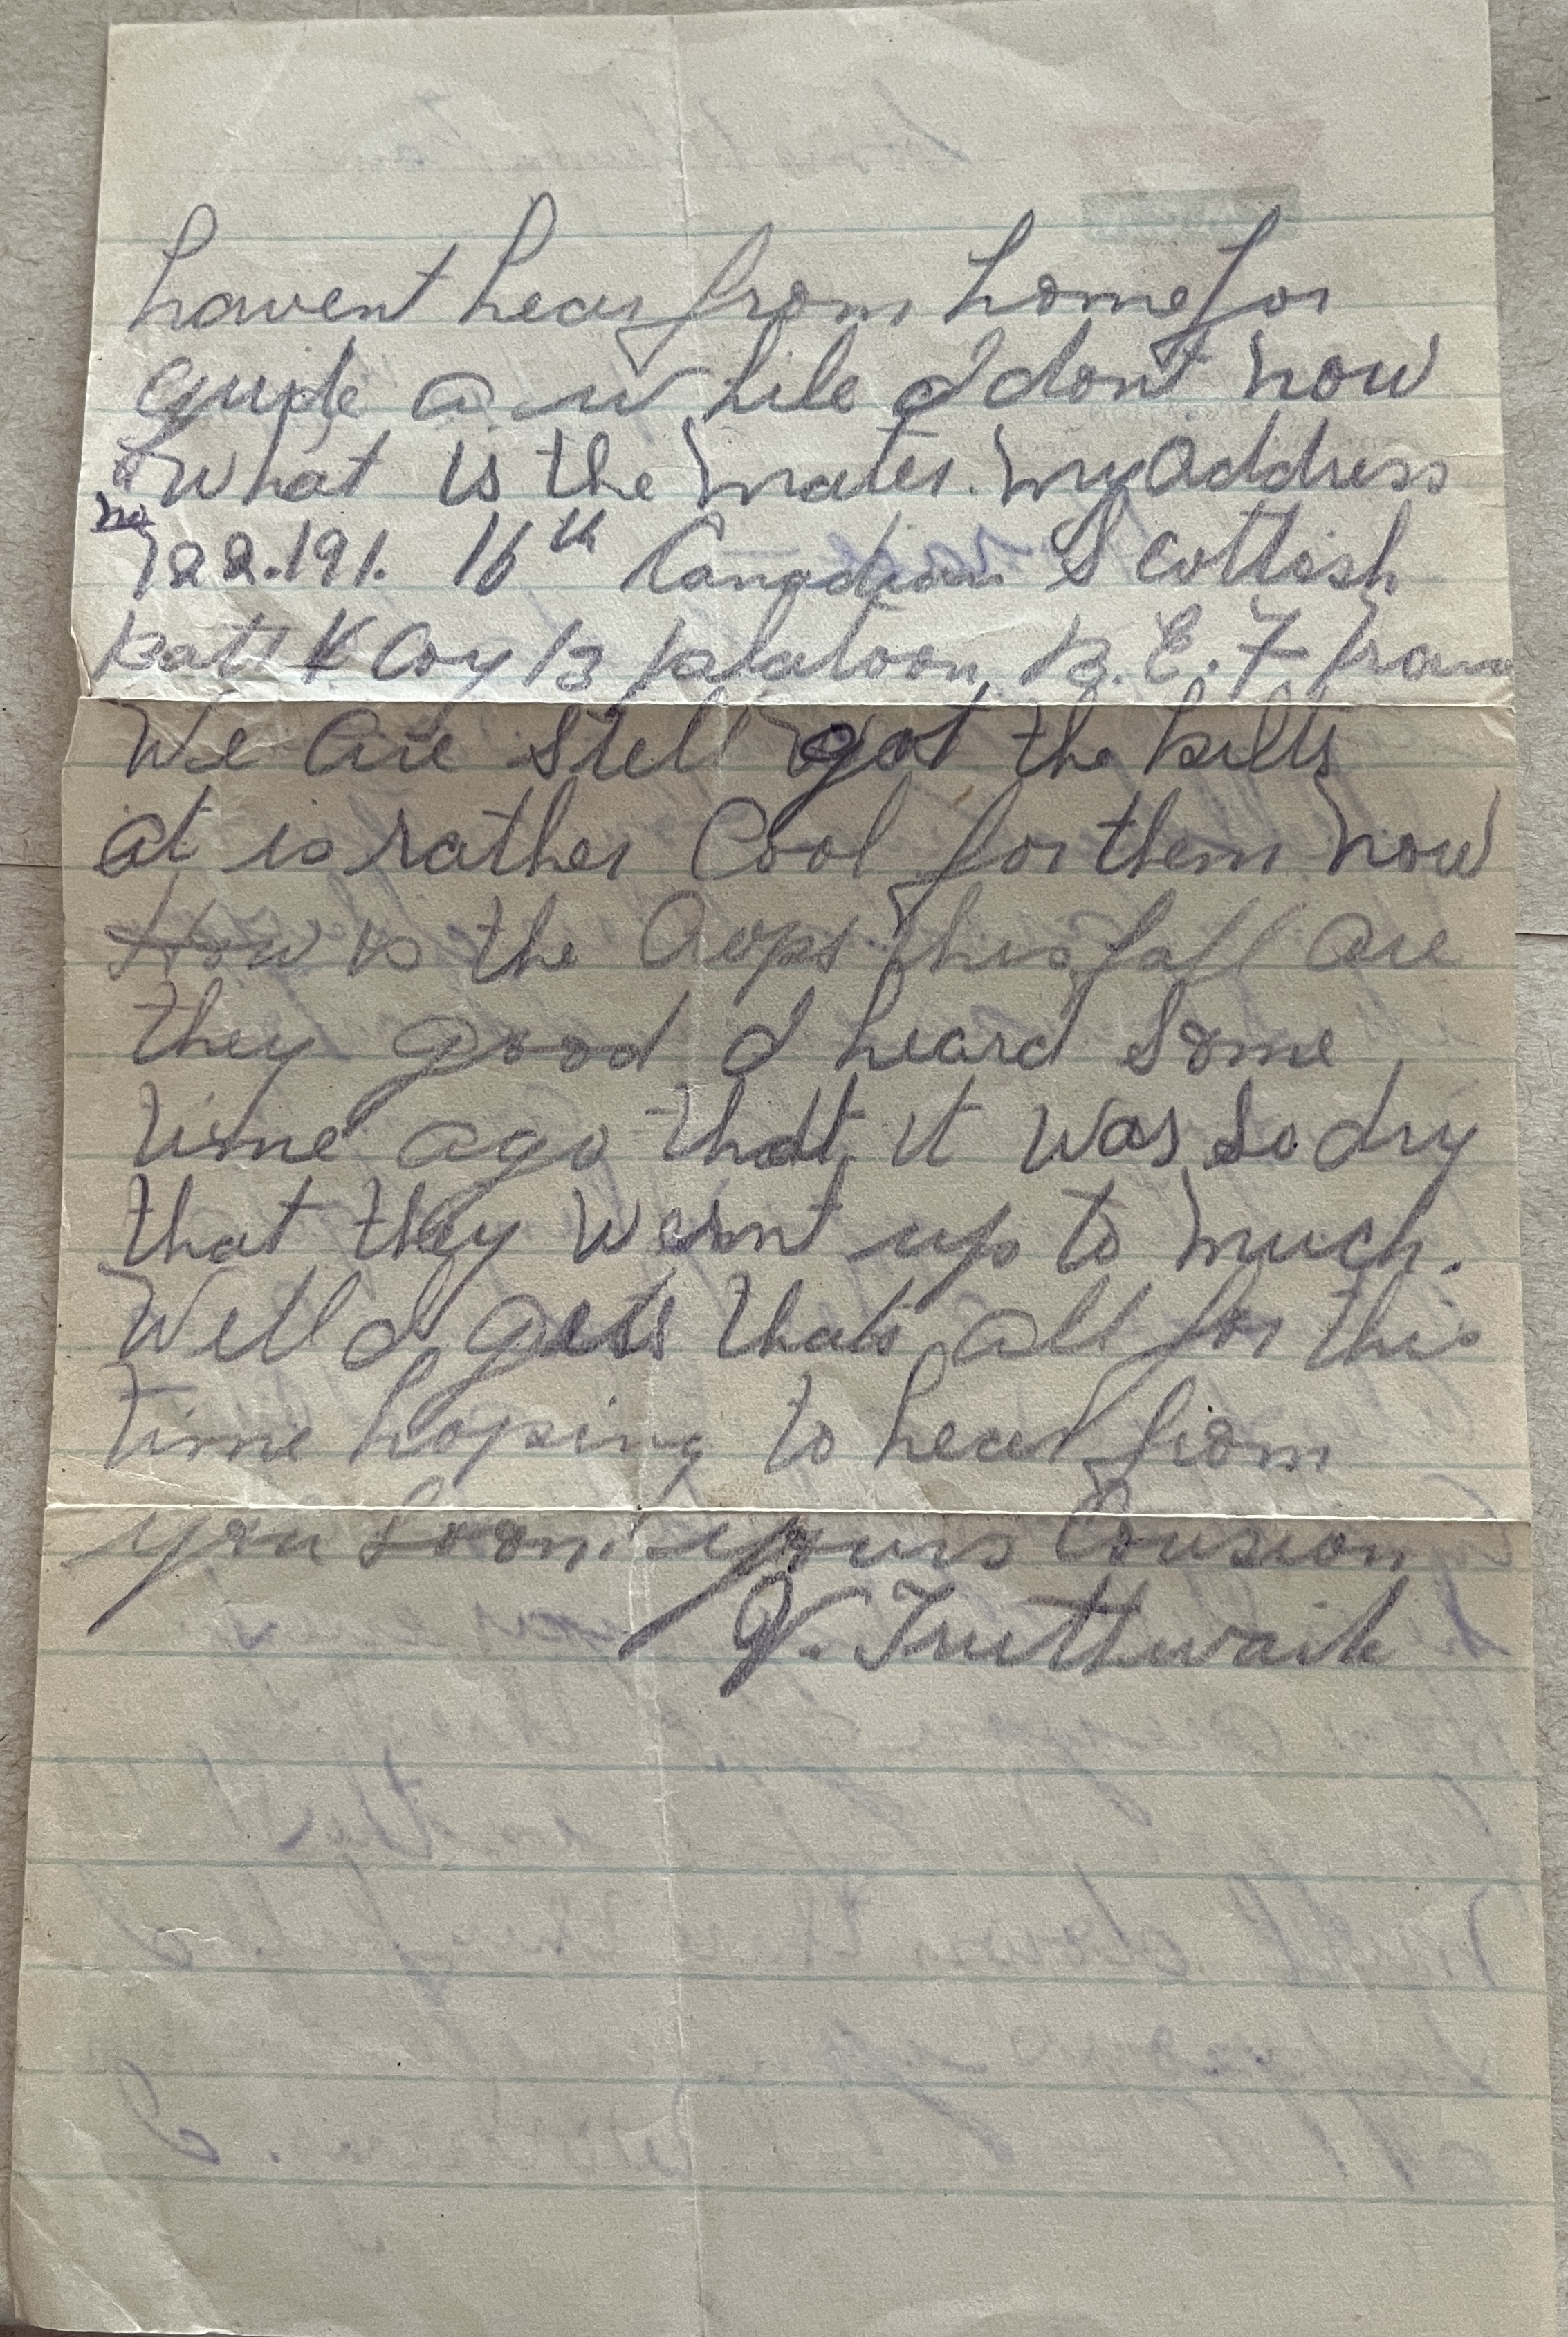 havent hear from home for
quite a while I dont now
what is the mater. my address
no
722.191. 16th Canadian Scottish
Batt Coy 13 platoon B.E.F
We are still got the kilts
it is rather Cool for them now
How is the Crops this fall are
they good I heard some
time ago that it was so dry
that they wernt up to much.
Well I gess thats all for this
time hoping to hear from
you soon. yours Cousion
V. Truthwaite